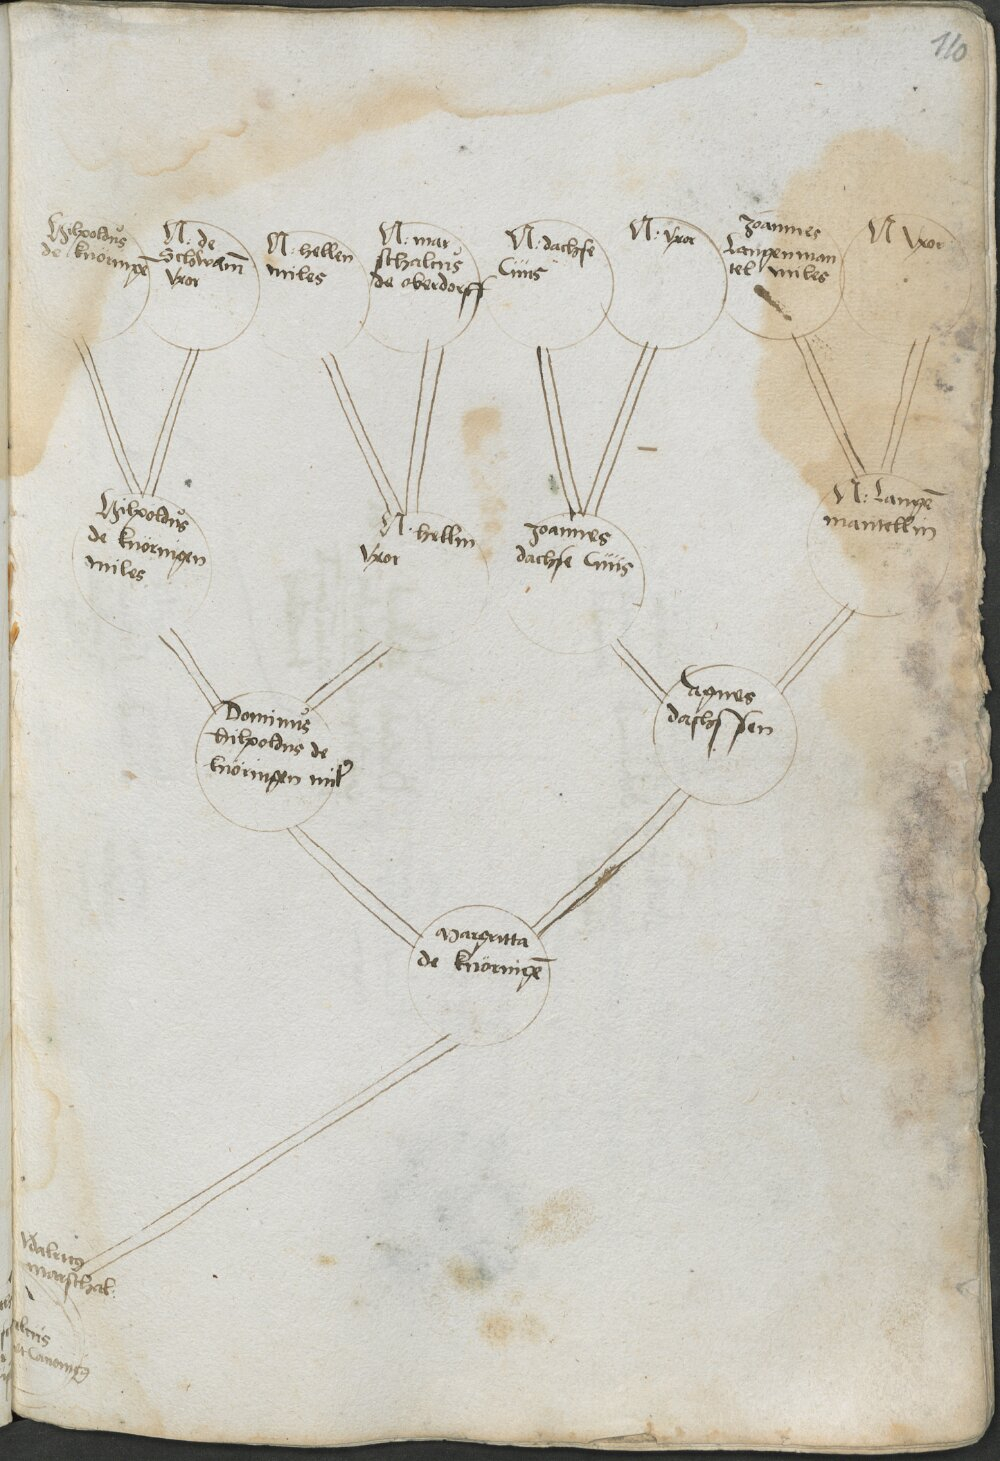 110
Hilpoldus
de knöringē
N: de
Schwain̄
Vxor
N: hellen
miles
N: mar
schalcus
de oberdorff
N: dachse
Ciuis
N: vxor
Joannes
Langenman
tel miles
N Vxor
Hilpoldus
de knöringen
miles
N: hellin
Vxor
Joannes
dachse Ciuis
N: Langē
mantellin
Dominus
hilpoldus de
knöringen mil
Agnes
dachssen
Margritta
de knöringē
Vdalricus
marschal:
alcus
et Canonicus